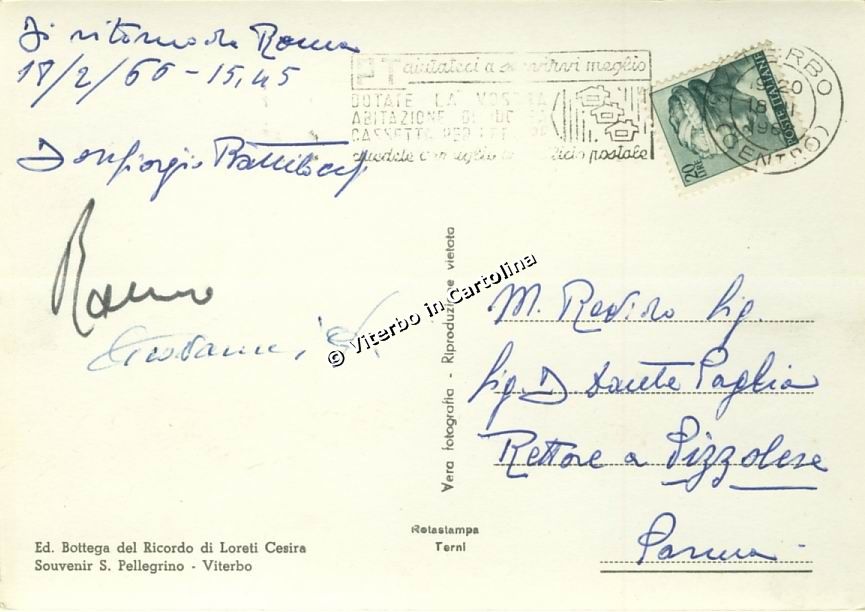 Di ritorno da Roma
18/2/66 - 15,45
Don Giorgio
PT aiutateci a servirvi meglio
DOTATE LA VOSTRA
ABITAZIONE DI
CASSETTA PER LETTERE
chiedete consiglio postale
VITERBO
(CENTRO)
19-20
18 II
196
POSTE ITALIANE
20 LIRE
© Viterbo in Cartolina
Vera fotografia - Riproduzione vietata
M. Rev.do Sig.
Sig. D Dante Paglia
Rettore a Pizzolese
Parma
Ed. Bottega del Ricordo di Loreti Cesira
Souvenir S. Pellegrino - Viterbo
Rotastampa
Terni